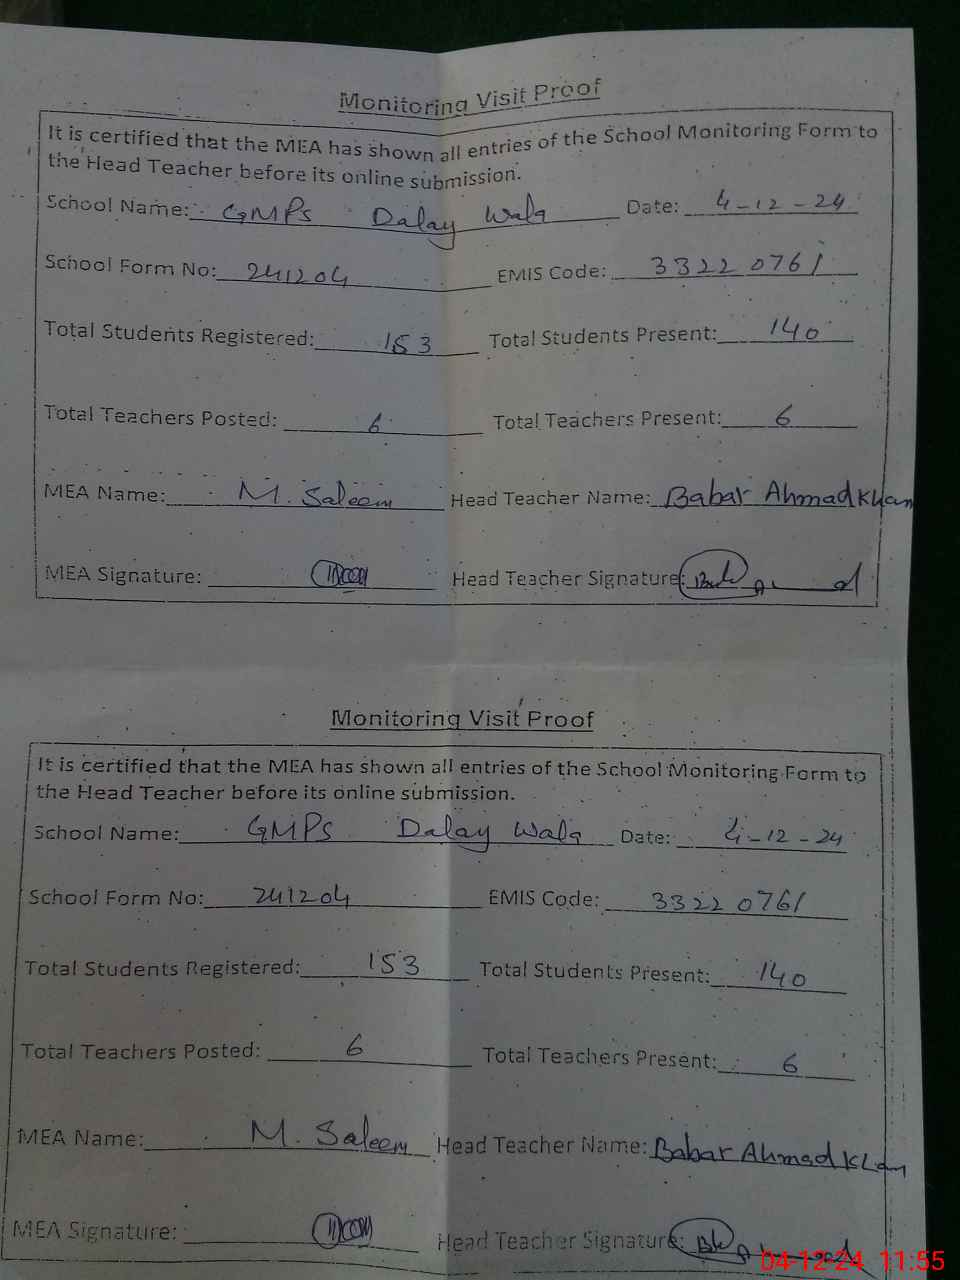 Monitoring Visit Proof
It is certified that the MEA has shown all entries of the School Monitoring Form to
the Head Teacher before its online submission.
School Name: GMPS Dalay Wala Date: 4-12-24
School Form No: 241204 EMIS Code: 33220761
Total Students Registered: 153 Total Students Present: 140
Total Teachers Posted: 6 Total Teachers Present: 6
MEA Name: M. Saleem Head Teacher Name: Babar Ahmad Khan
MEA Signature: Head Teacher Signature:
Monitoring Visit Proof
It is certified that the MEA has shown all entries of the School Monitoring Form to
the Head Teacher before its online submission.
School Name: GMPS Dalay Wala Date: 4-12-24
School Form No: 241204 EMIS Code: 33220761
Total Students Registered: 153 Total Students Present: 140
Total Teachers Posted: 6 Total Teachers Present: 6
MEA Name: M. Saleem Head Teacher Name: Babar Ahmad Khan
MEA Signature: Head Teacher Signature:
04-12-24 11:55